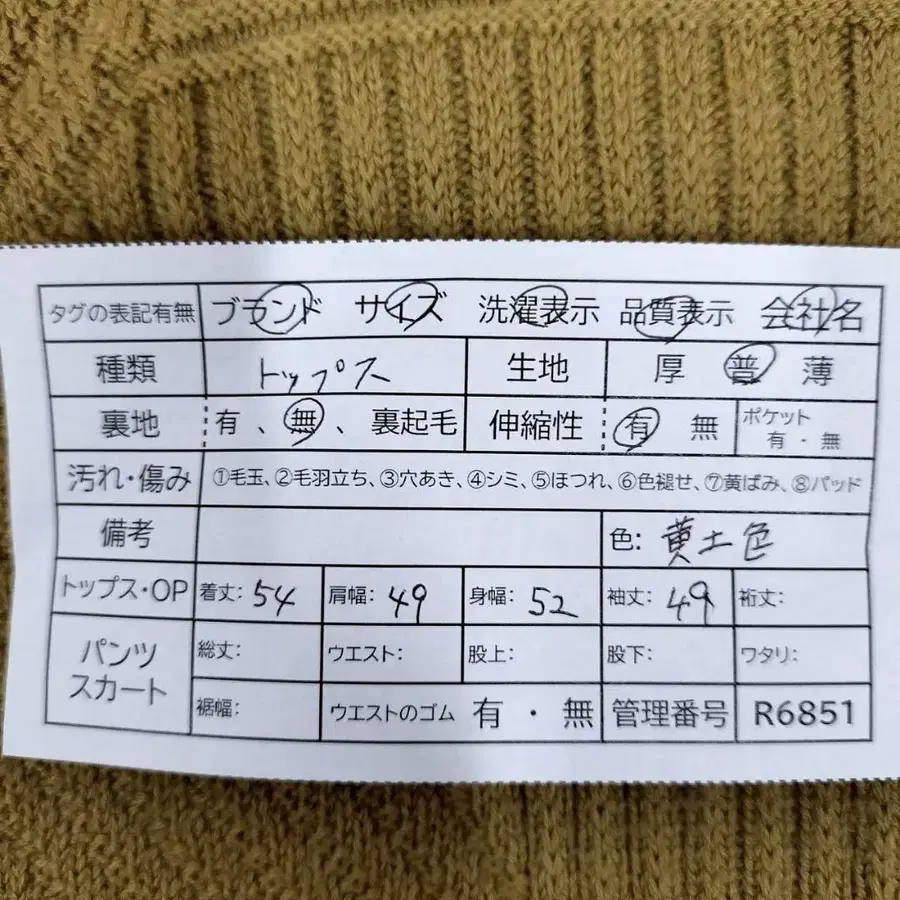 タグの表記有無 ブランド サイズ 洗濯表示 品質表示 会社名
種類 トップス 生地 厚 普 薄
裏地 有 、無 、 裏起毛 伸縮性 有 無 ポケット 有・無
汚れ・傷み ①毛玉、②毛羽立ち、③穴あき、④シミ、⑤ほつれ、⑥色褪せ、⑦黄ばみ、⑧パッド
備考 色: 黄土色
トップス・OP 着丈: 54 肩幅: 49 身幅: 52 袖丈: 49 裄丈:
パンツ スカート 総丈: ウエスト: 股上: 股下: ワタリ:
裾幅: ウエストのゴム 有 ・ 無 管理番号 R6851